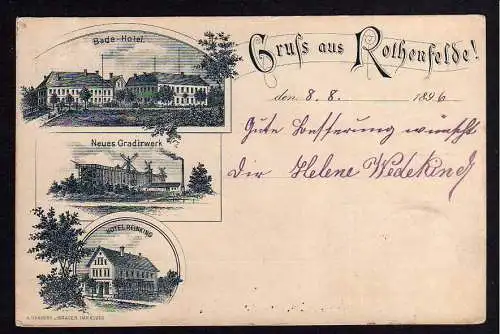 Bade-Hotel.
Gruſs aus Rothenfelde!
den 8. 8. 1896
Neues Gradirwerk
Gute Besserung wünscht
Dir Helene Wedekind
HOTEL REINKING